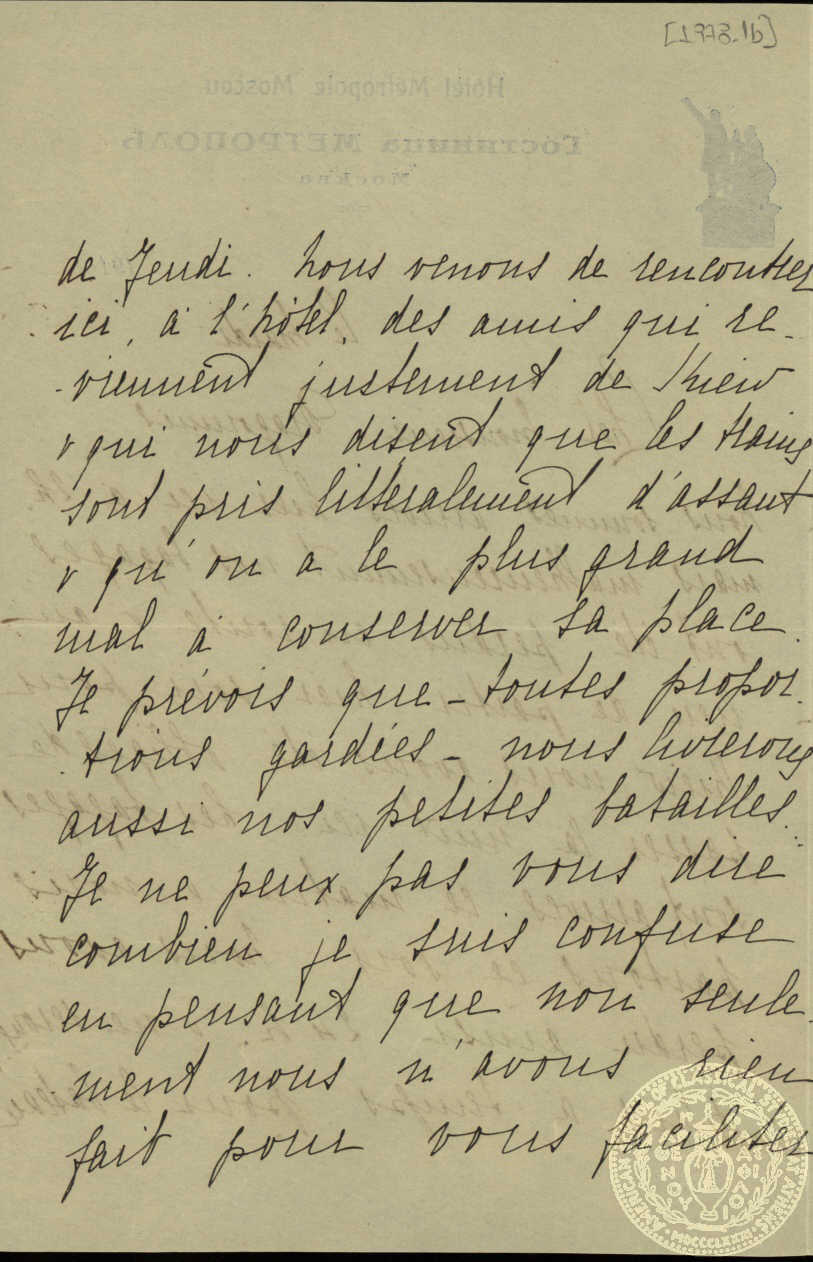 [1973.1b]
Hôtel Métropole Moscou
Гостиница МЕТРОПОЛЬ
Москва
de Jeudi. Nous venons de rencontrer
ici, à l'hôtel, des amis qui re-
-viennent justement de Kiew
& qui nous disent que les trains
sont pris littéralement d'assaut
& qu'on a le plus grand
mal à conserver sa place.
Je prévois que - toutes propor-
-tions gardées - nous livrerons
aussi nos petites batailles.
Je ne peux pas vous dire
combien je suis confuse
en pensant que non seule-
ment nous n'avons rien
fait pour vous faciliter